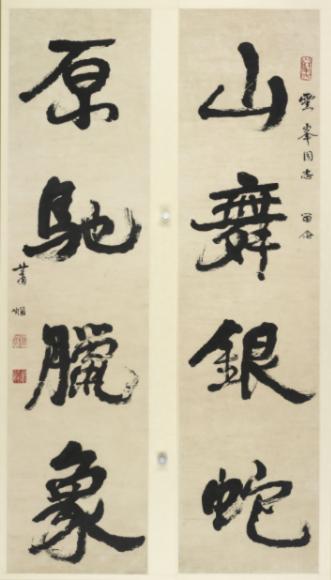 雲峯同志 留念
山舞銀蛇
原馳臘象
蕭嫻